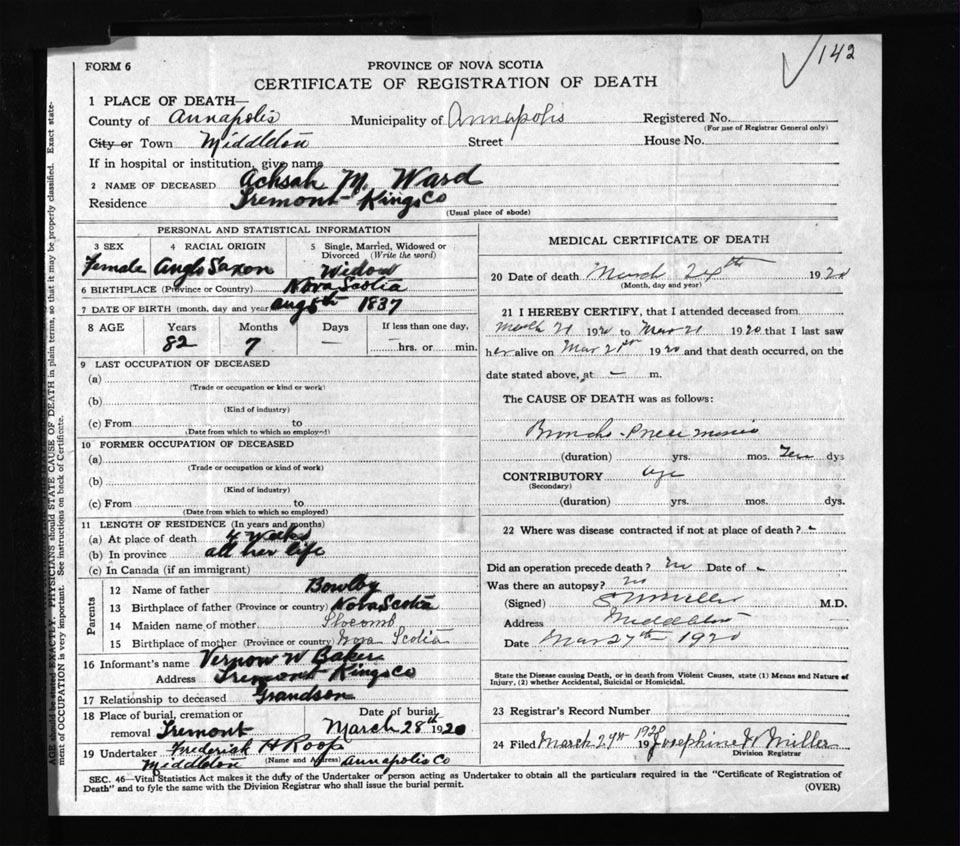 142
FORM 6
PROVINCE OF NOVA SCOTIA
CERTIFICATE OF REGISTRATION OF DEATH
1 PLACE OF DEATH—
County of Annapolis Municipality of Annapolis Registered No.
(For use of Registrar General only)
City or Town Middleton Street House No.
If in hospital or institution, give name
2 NAME OF DECEASED Achsah M. Ward
Residence Tremont Kings Co
(Usual place of abode)
PERSONAL AND STATISTICAL INFORMATION
3 SEX 4 RACIAL ORIGIN 5 Single, Married, Widowed or Divorced (Write the word)
Female Anglo Saxon Widow
6 BIRTHPLACE (Province or Country) Nova Scotia
7 DATE OF BIRTH (month, day and year) Aug 8th 1837
8 AGE Years Months Days If less than one day,
82 7 — — hrs. or min.
9 LAST OCCUPATION OF DECEASED
(a)
(Trade or occupation or kind or work)
(b)
(Kind of industry)
(c) From to
(Date from which to which so employed)
10 FORMER OCCUPATION OF DECEASED
(a)
(Trade or occupation or kind of work)
(b)
(Kind of industry)
(c) From to
(Date from which to which so employed)
11 LENGTH OF RESIDENCE (In years and months)
(a) At place of death weeks
(b) In province all her life
(c) In Canada (if an immigrant)
Parents
12 Name of father Bowlby
13 Birthplace of father (Province or country) Nova Scotia
14 Maiden name of mother Slocomb
15 Birthplace of mother (Province or country) Nova Scotia
16 Informant's name Vernon W Baker
Address Tremont Kings Co
17 Relationship to deceased Grandson
18 Place of burial, cremation or Date of burial
removal Tremont March 28th 1920
19 Undertaker Frederick H Roop
Middleton (Name and Address) Annapolis Co
MEDICAL CERTIFICATE OF DEATH
20 Date of death March 24th 1920
(Month, day and year)
21 I HEREBY CERTIFY, that I attended deceased from
March 21 1920 to Mar 21 1920 that I last saw
her alive on Mar 21st 1920 and that death occurred, on the
date stated above, at — m.
The CAUSE OF DEATH was as follows:
Broncho-Pneumonia
(duration) yrs. mos. Ten dys
CONTRIBUTORY age
(Secondary)
(duration) yrs. mos. dys.
22 Where was disease contracted if not at place of death? -
Did an operation precede death? no Date of -
Was there an autopsy? no
(Signed) Miller M.D.
Address Middleton
Date Mar 27th 1920
State the Disease causing Death, or in death from Violent Causes, state (1) Means and Nature of
Injury, (2) whether Accidental, Suicidal or Homicidal.
23 Registrar's Record Number
24 Filed March 29th 1920 19 Josephine H Miller
Division Registrar
SEC. 46—Vital Statistics Act makes it the duty of the Undertaker or person acting as Undertaker to obtain all the particulars required in the "Certificate of Registration of
Death" and to fyle the same with the Division Registrar who shall issue the burial permit.
(OVER)
AGE should be stated EXACTLY. PHYSICIANS should STATE CAUSE OF DEATH in plain terms, so that it may be properly classified. Exact state-
ment of OCCUPATION is very important. See instructions on back of Certificate.